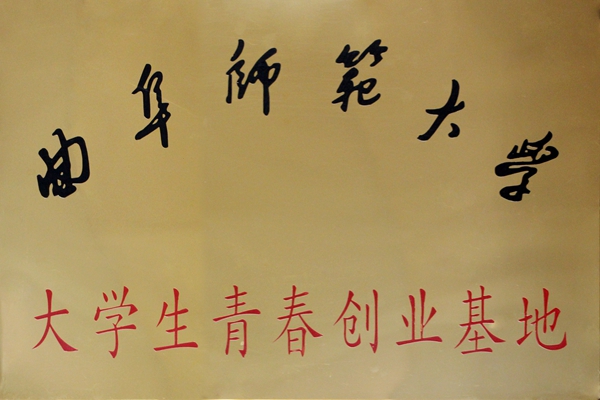 曲阜师範大学
大学生青春创业基地